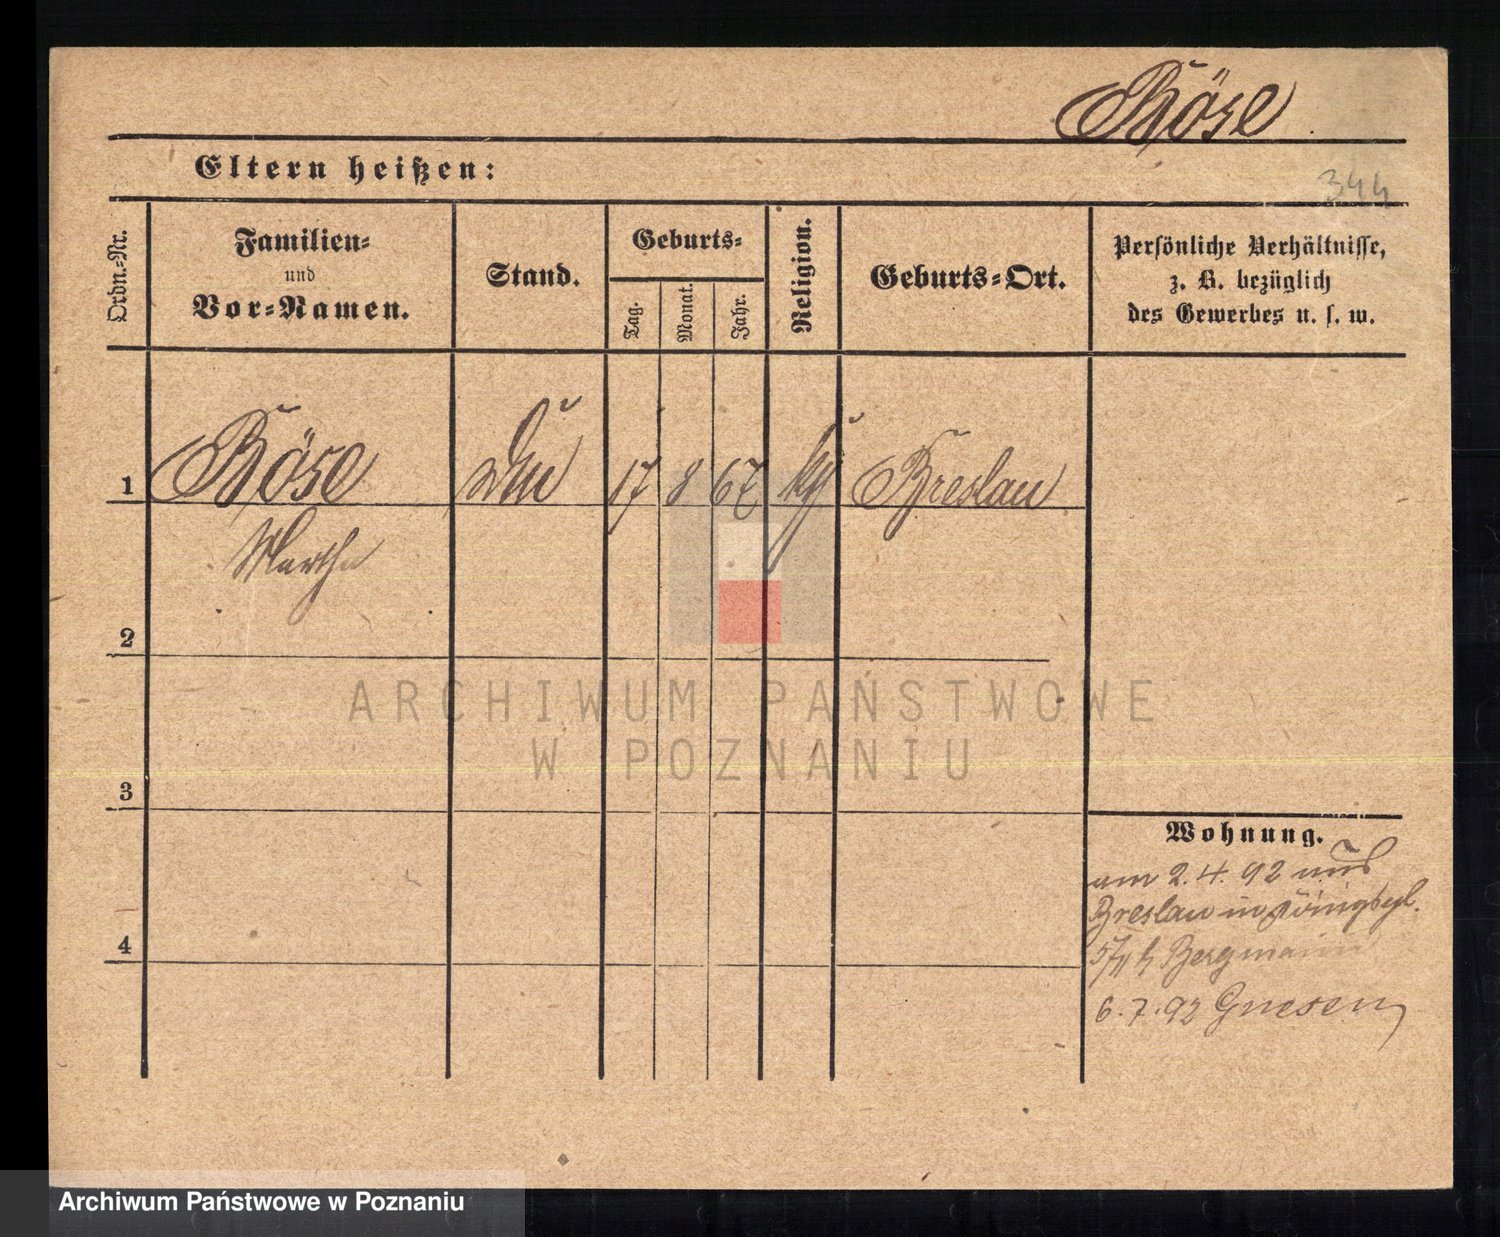 Röse
344
Eltern heißen:
Ordn.-Nr.
Familien-
und
Vor-Namen.
Stand.
Geburts-
Tag.
Monat.
Jahr.
Religion.
Geburts-Ort.
Persönliche Verhältnisse,
z. B. bezüglich
des Gewerbes u. s. w.
1
Röse
17
8
67
Breslau
Martha
2
ARCHIWUM PAŃSTWOWE
W POZNANIU
3
Wohnung.
am 2.4.92 aus
Breslau in
4
Bergmann
6.7.92 Gnesen
Archiwum Państwowe w Poznaniu